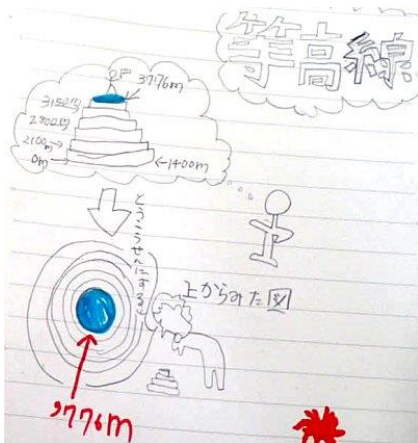 等高線
3776m
3150m
2800m
2100m
0m
1400m
とうこうせんにすると
上からみた図
3776m